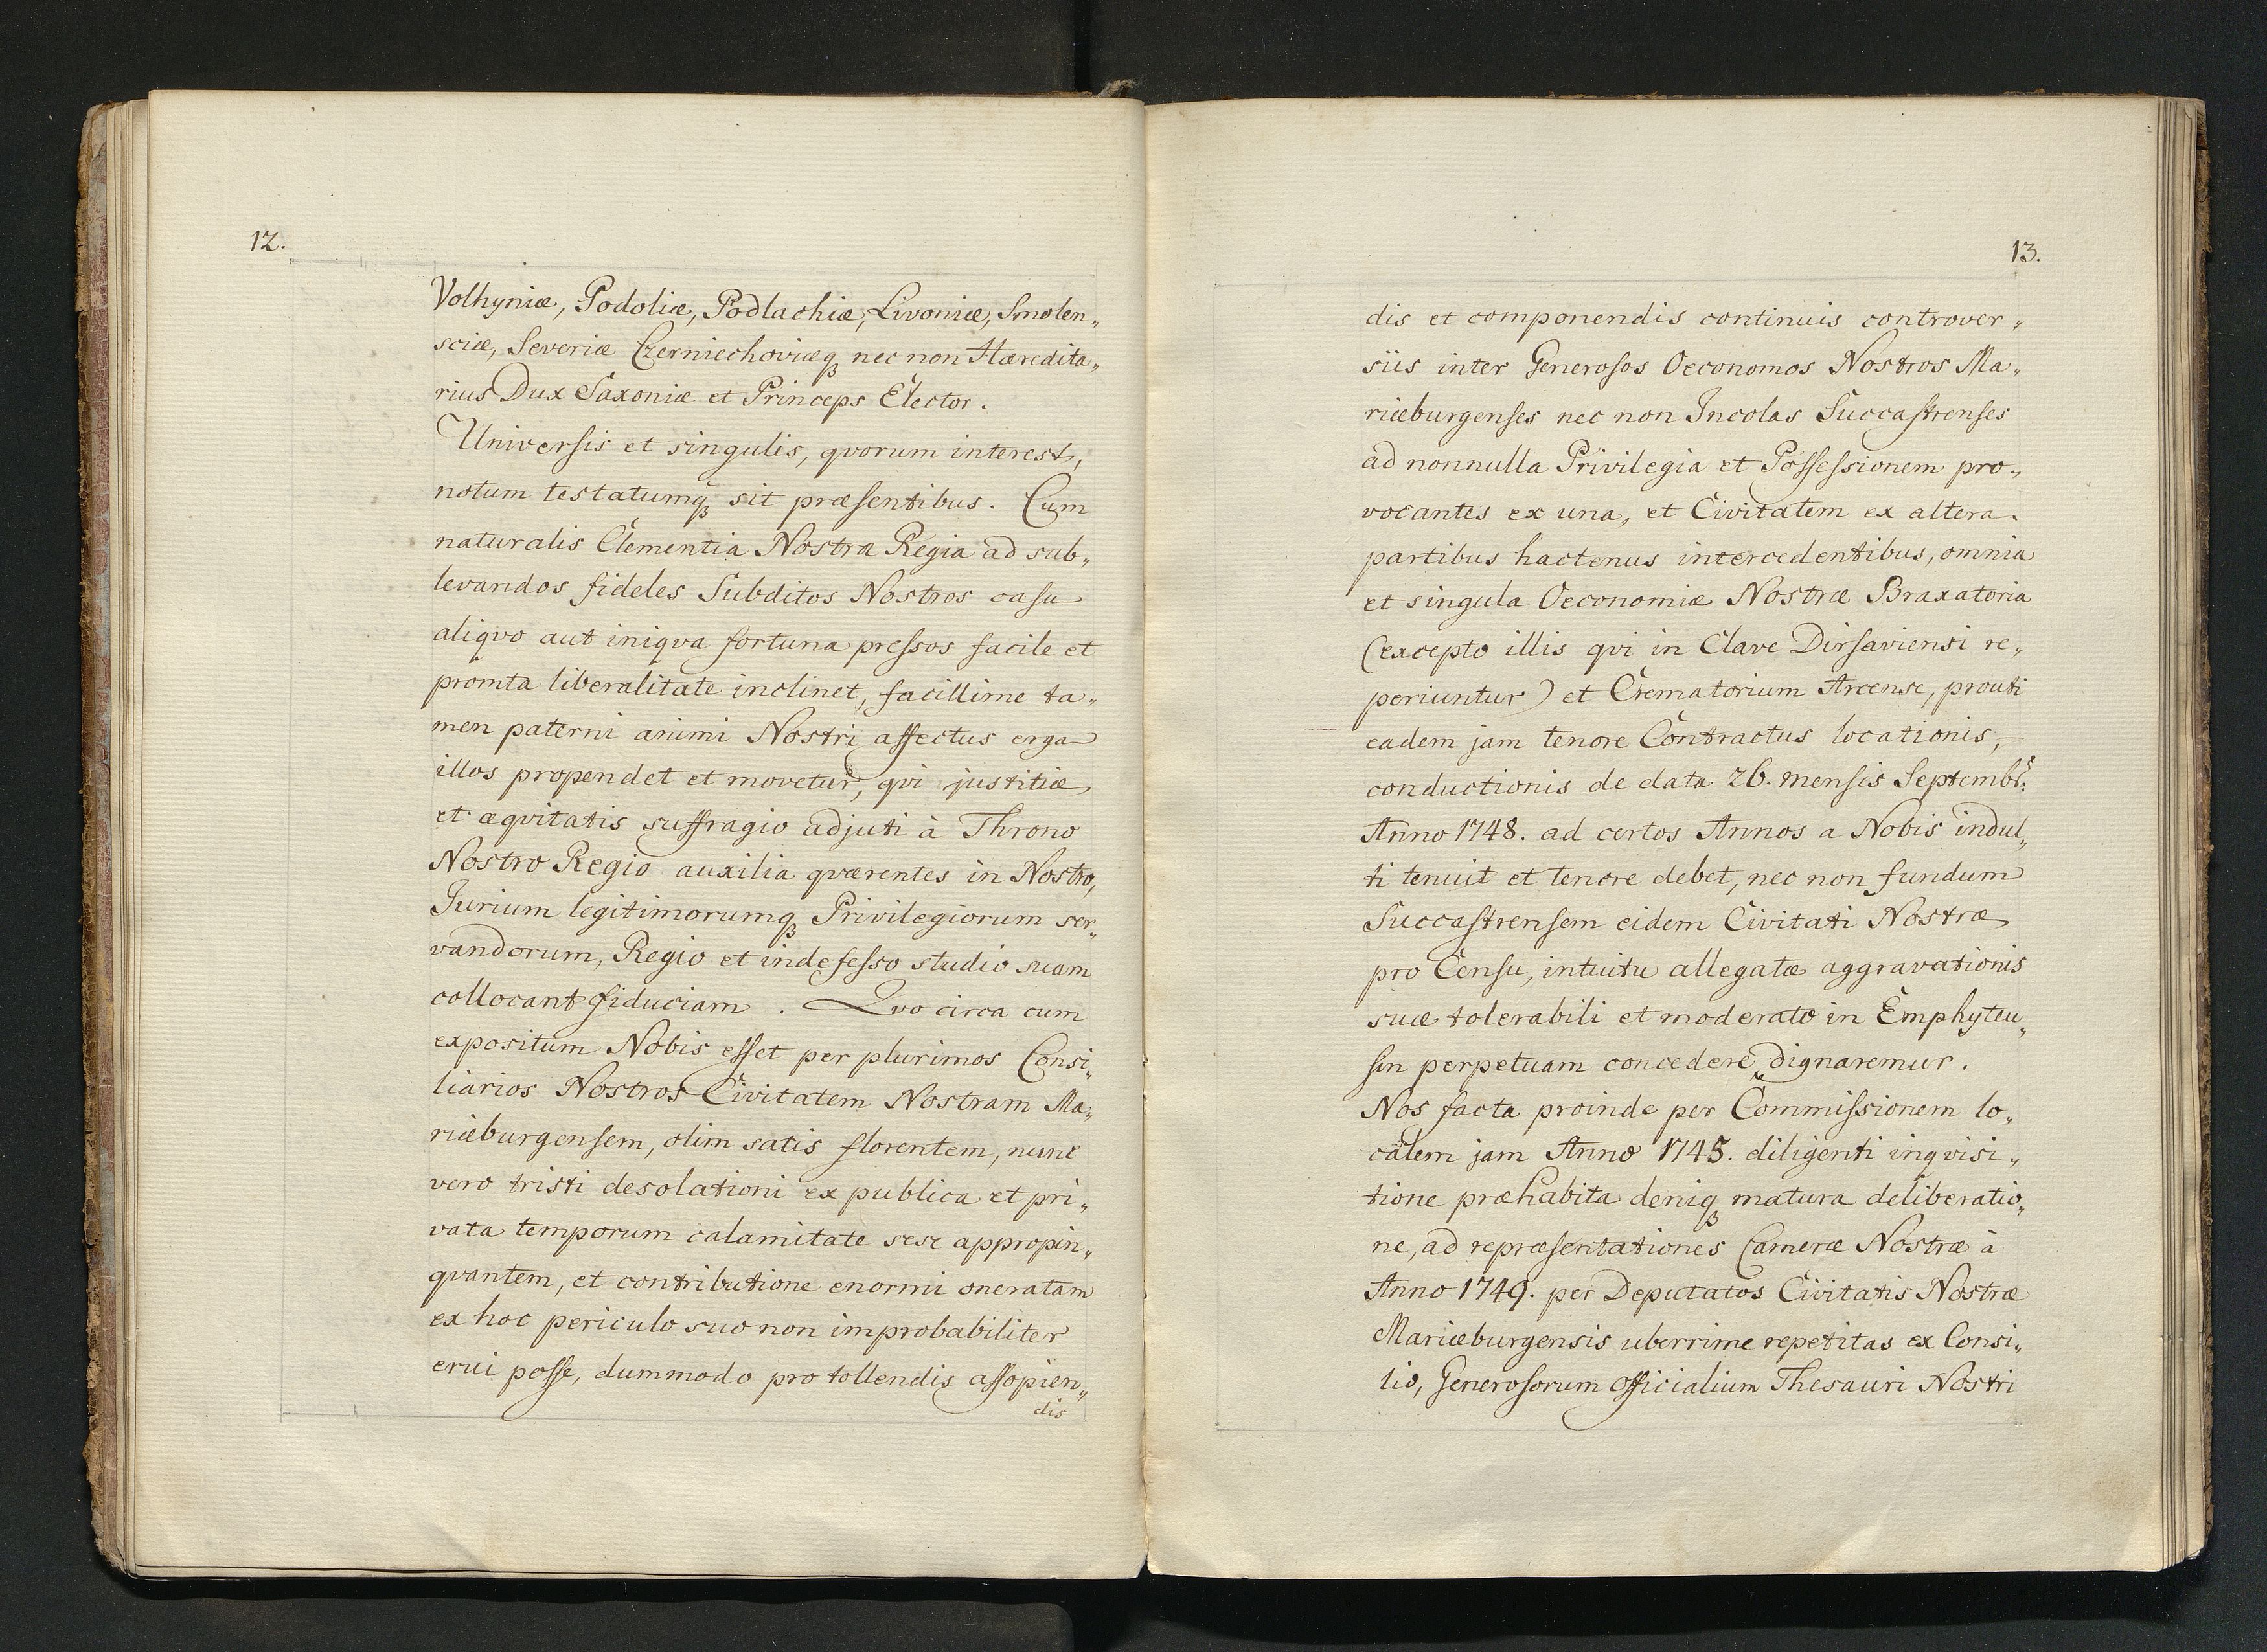 12.
Volhyniæ, Podoliæ, Podlachiæ, Livoniæ, Smolen„
sciæ, Severiæ Czerniechoviæq; nec non Hæredita„
rius Dux Saxoniæ et Princeps Elector.
Universis et singulis, qvorum interest,
notum testatumq; sit præsentibus. Cum
naturalis Clementia Nostra Regia ad sub„
levandos fideles Subditos Nostros casu
aliqvo aut iniqva fortuna pressos facile et
promta liberalitate inclinet, facillime ta„
men paterni animi Nostri affectus erga
illos propendet et movetur, qvi justitiæ
et æqvitatis suffragio adjuti à Throno
Nostro Regio auxilia qværentes in Nostro,
Jurium legitimorumq; Privilegiorum ser„
vandorum, Regio et indefesso studio suam
collocant fiduciam. Qvo circa cum
expositum Nobis esset per plurimos Consi„
liarios Nostros Civitatem Nostram Ma„
riæburgensem, olim satis florentem, nunc
vero tristi desolationi ex publica et pri„
vata temporum calamitate sese appropin„
qvantem, et contributione enormi oneratam
ex hoc periculo suo non improbabiliter
erui posse, dummodo pro tollendis assopien„
dis
13.
dis et componendis continuis controver„
siis inter Generosos Oeconomos Nostros Ma„
riæburgenses nec non Incolas Succastrenses
ad nonnulla Privilegia et Possessionem pro„
vocantes ex una, et Civitatem ex altera.
partibus hactenus intercedentibus, omnia
et singula Oeconomiæ Nostræ Braxatoria
(excepto illis qvi in Clave Dirsaviensi re„
periuntur) et Crematorium Arcense, prouti
eadem jam tenore Contractus locationis,
conductionis de data 26. mensis Septembr:
Anno 1748. ad certos Annos a Nobis indul„
ti tenuit et tenere debet, nec non fundum
Succastrensem eidem Civitati Nostræ
pro Censu, intuitu allegatæ aggravationis
suæ tolerabili et moderato in Emphyteu„
sin perpetuam concedere dignaremur.
Nos facta proinde per Commissionem lo„
calem jam Anno 1745. diligenti inqvisi„
tione præhabita deniq; matura deliberatio„
ne, ad repræsentationes Cameræ Nostræ à
Anno 1749. per Deputatos Civitatis Nostræ
Mariæburgensis uberrime repetitas ex Consi„
lio, Generosorum Officialium Thesauri Nostri